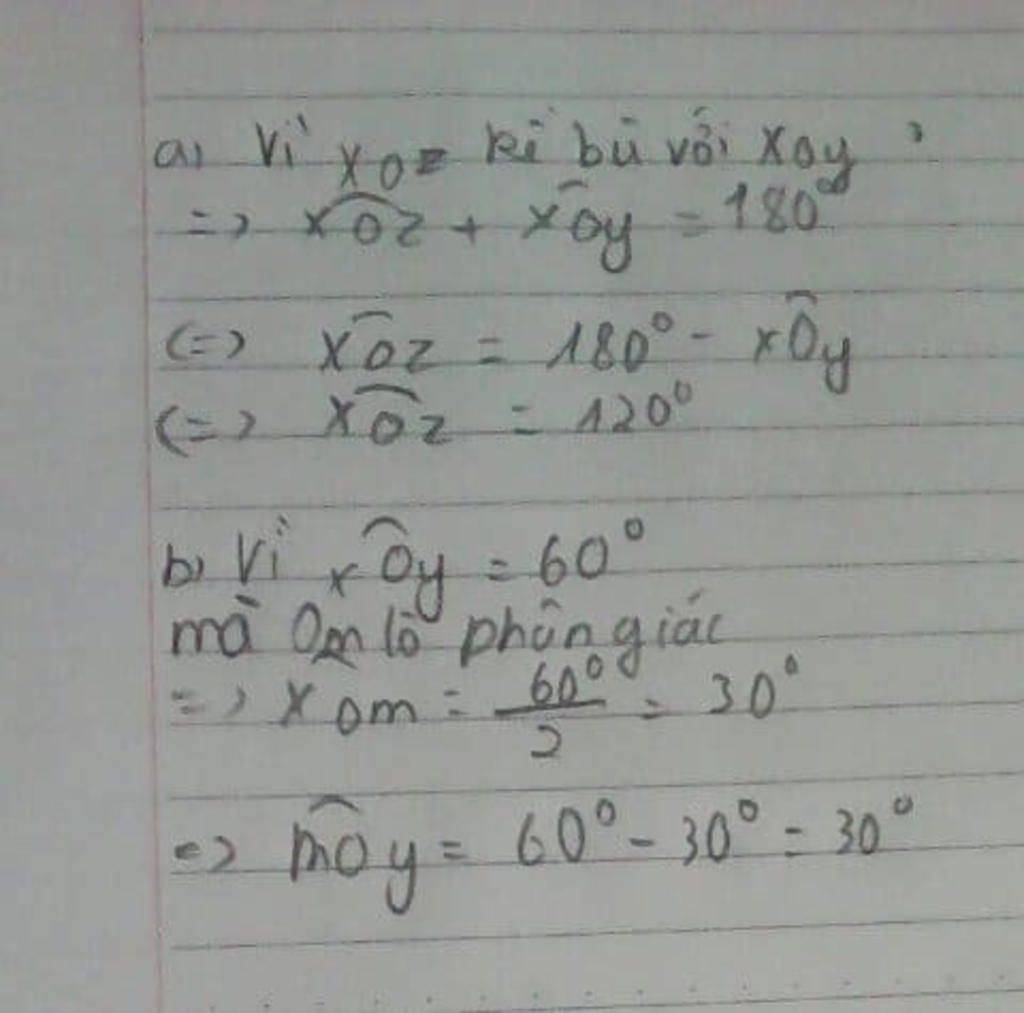 a) Vì xOz kề bù với xOy
=> xOz + xOy = 180°
(=) xOz = 180° - xOy
(=) xOz = 120°
b) Vì xOy = 60°
mà Om là phân giác
=> xOm = 60°/2 = 30°
=> mOy = 60° - 30° = 30°